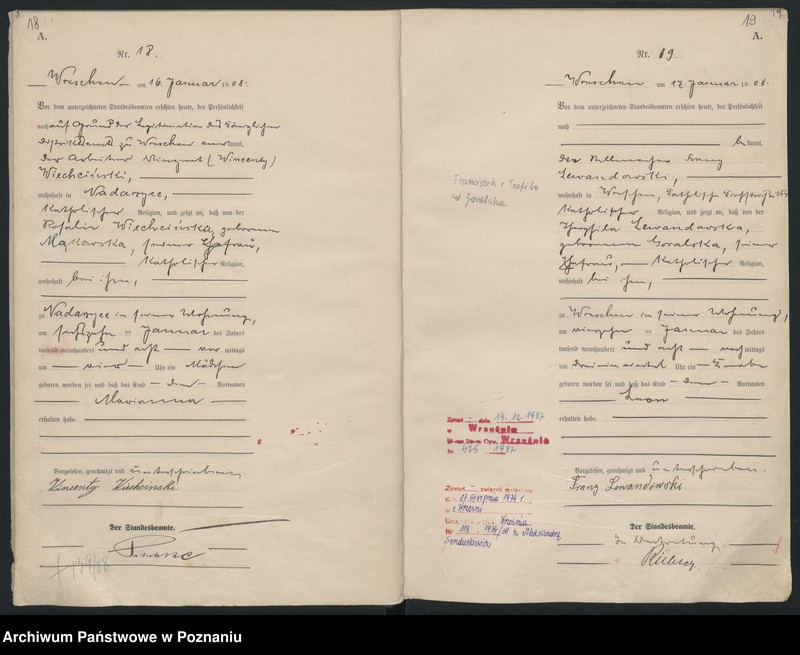 18
A.
Nr. 18.
Wreschen am 16. Januar 1908.
Vor dem unterzeichneten Standesbeamten erschien heute, der Persönlichkeit
nach auf Grund der Legitimation des Königlichen
Distriktsamts zu Wreschen anerkannt,
der Arbeiter Vinzent (Wincenty)
Wiechciński,
wohnhaft in
katholischer Religion, und zeigt an, daß von der
Rosalie Wiechcińska, geborenen
Mąkowska, seiner Ehefrau,
katholischer Religion,
wohnhaft bei ihm,
zu in seiner Wohnung,
am Januar des Jahres
tausend neunhundert und acht vor mittags
um vier Uhr ein Mädchen
geboren worden sei und daß das Kind den Vornamen
Marianna
erhalten habe.
Vorgelesen, genehmigt und unterschrieben.
Vincenty Wiechcinski
Der Standesbeamte.
139/08
19
A.
Nr. 19.
Wreschen am 17. Januar 1908.
Vor dem unterzeichneten Standesbeamten erschien heute, der Persönlichkeit
nach
bekannt,
der Stellmacher Franz
Lewandowski,
wohnhaft in Wreschen,
katholischer Religion, und zeigt an, daß von der
Theophila Lewandowska,
geborenen Goralska, seiner
Ehefrau, katholischer Religion,
wohnhaft bei ihm,
zu Wreschen in seiner Wohnung,
am vierzehn ten Januar des Jahres
tausend neunhundert und acht nach mittags
um Uhr ein Knabe
geboren worden sei und daß das Kind den Vornamen
Leon
erhalten habe.
Vorgelesen, genehmigt und unterschrieben.
Franz Lewandowski
Der Standesbeamte.
In Vertretung.
Franciszek i Teofila
z d Goralska
Zmarł dnia 14.12.1987
w Września
Września
Nr 425 1987
Zawarł związek małżeński
dnia 17 sierpnia 1974 r.
Września
Nr 118 1974/ z Aleksandrą
Archiwum Państwowe w Poznaniu